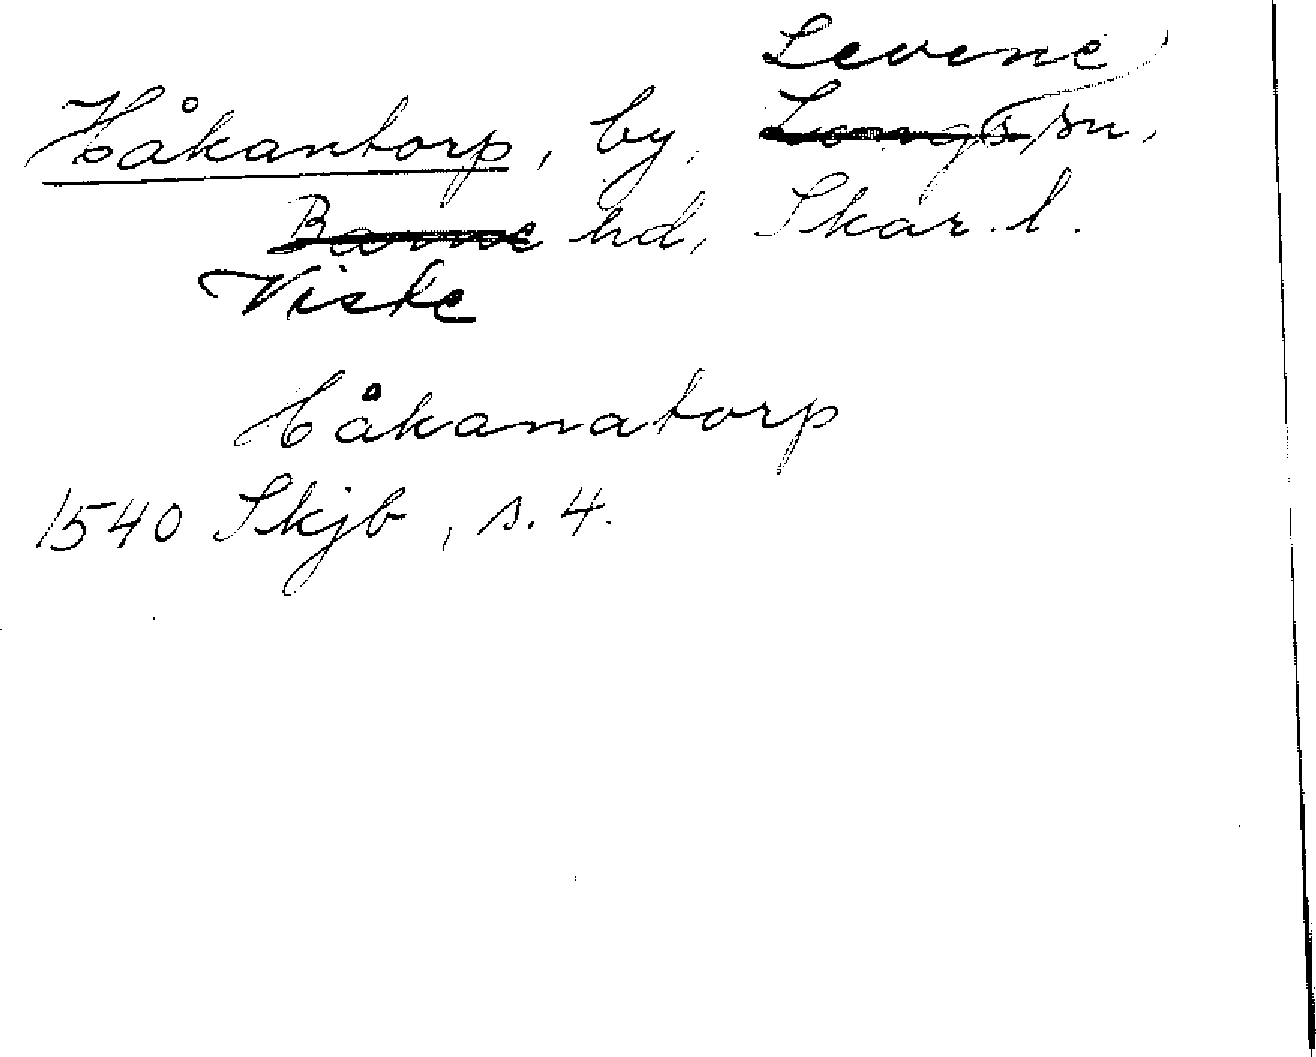 Levene
Håkantorp, by, Longs sn,
Barne hd, Skar. l.
Viste
Håkanatorp
1540 Skjb, s. 4.